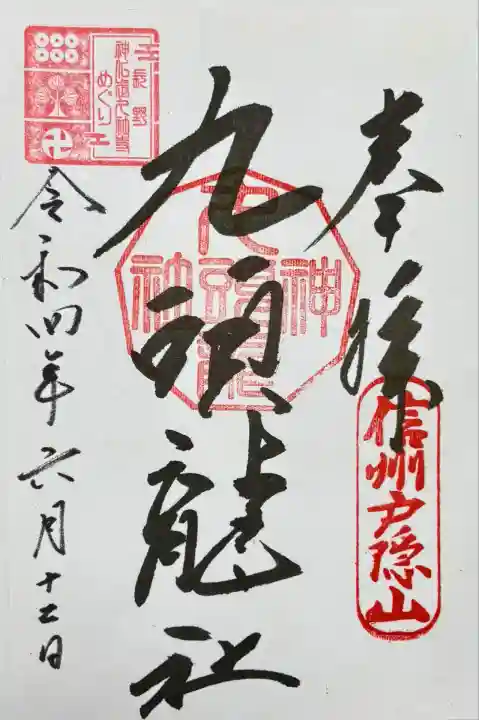 奉拝
信州戸隠山
九頭龍社
九頭龍
神社
長野
めぐり
令和四年六月十二日